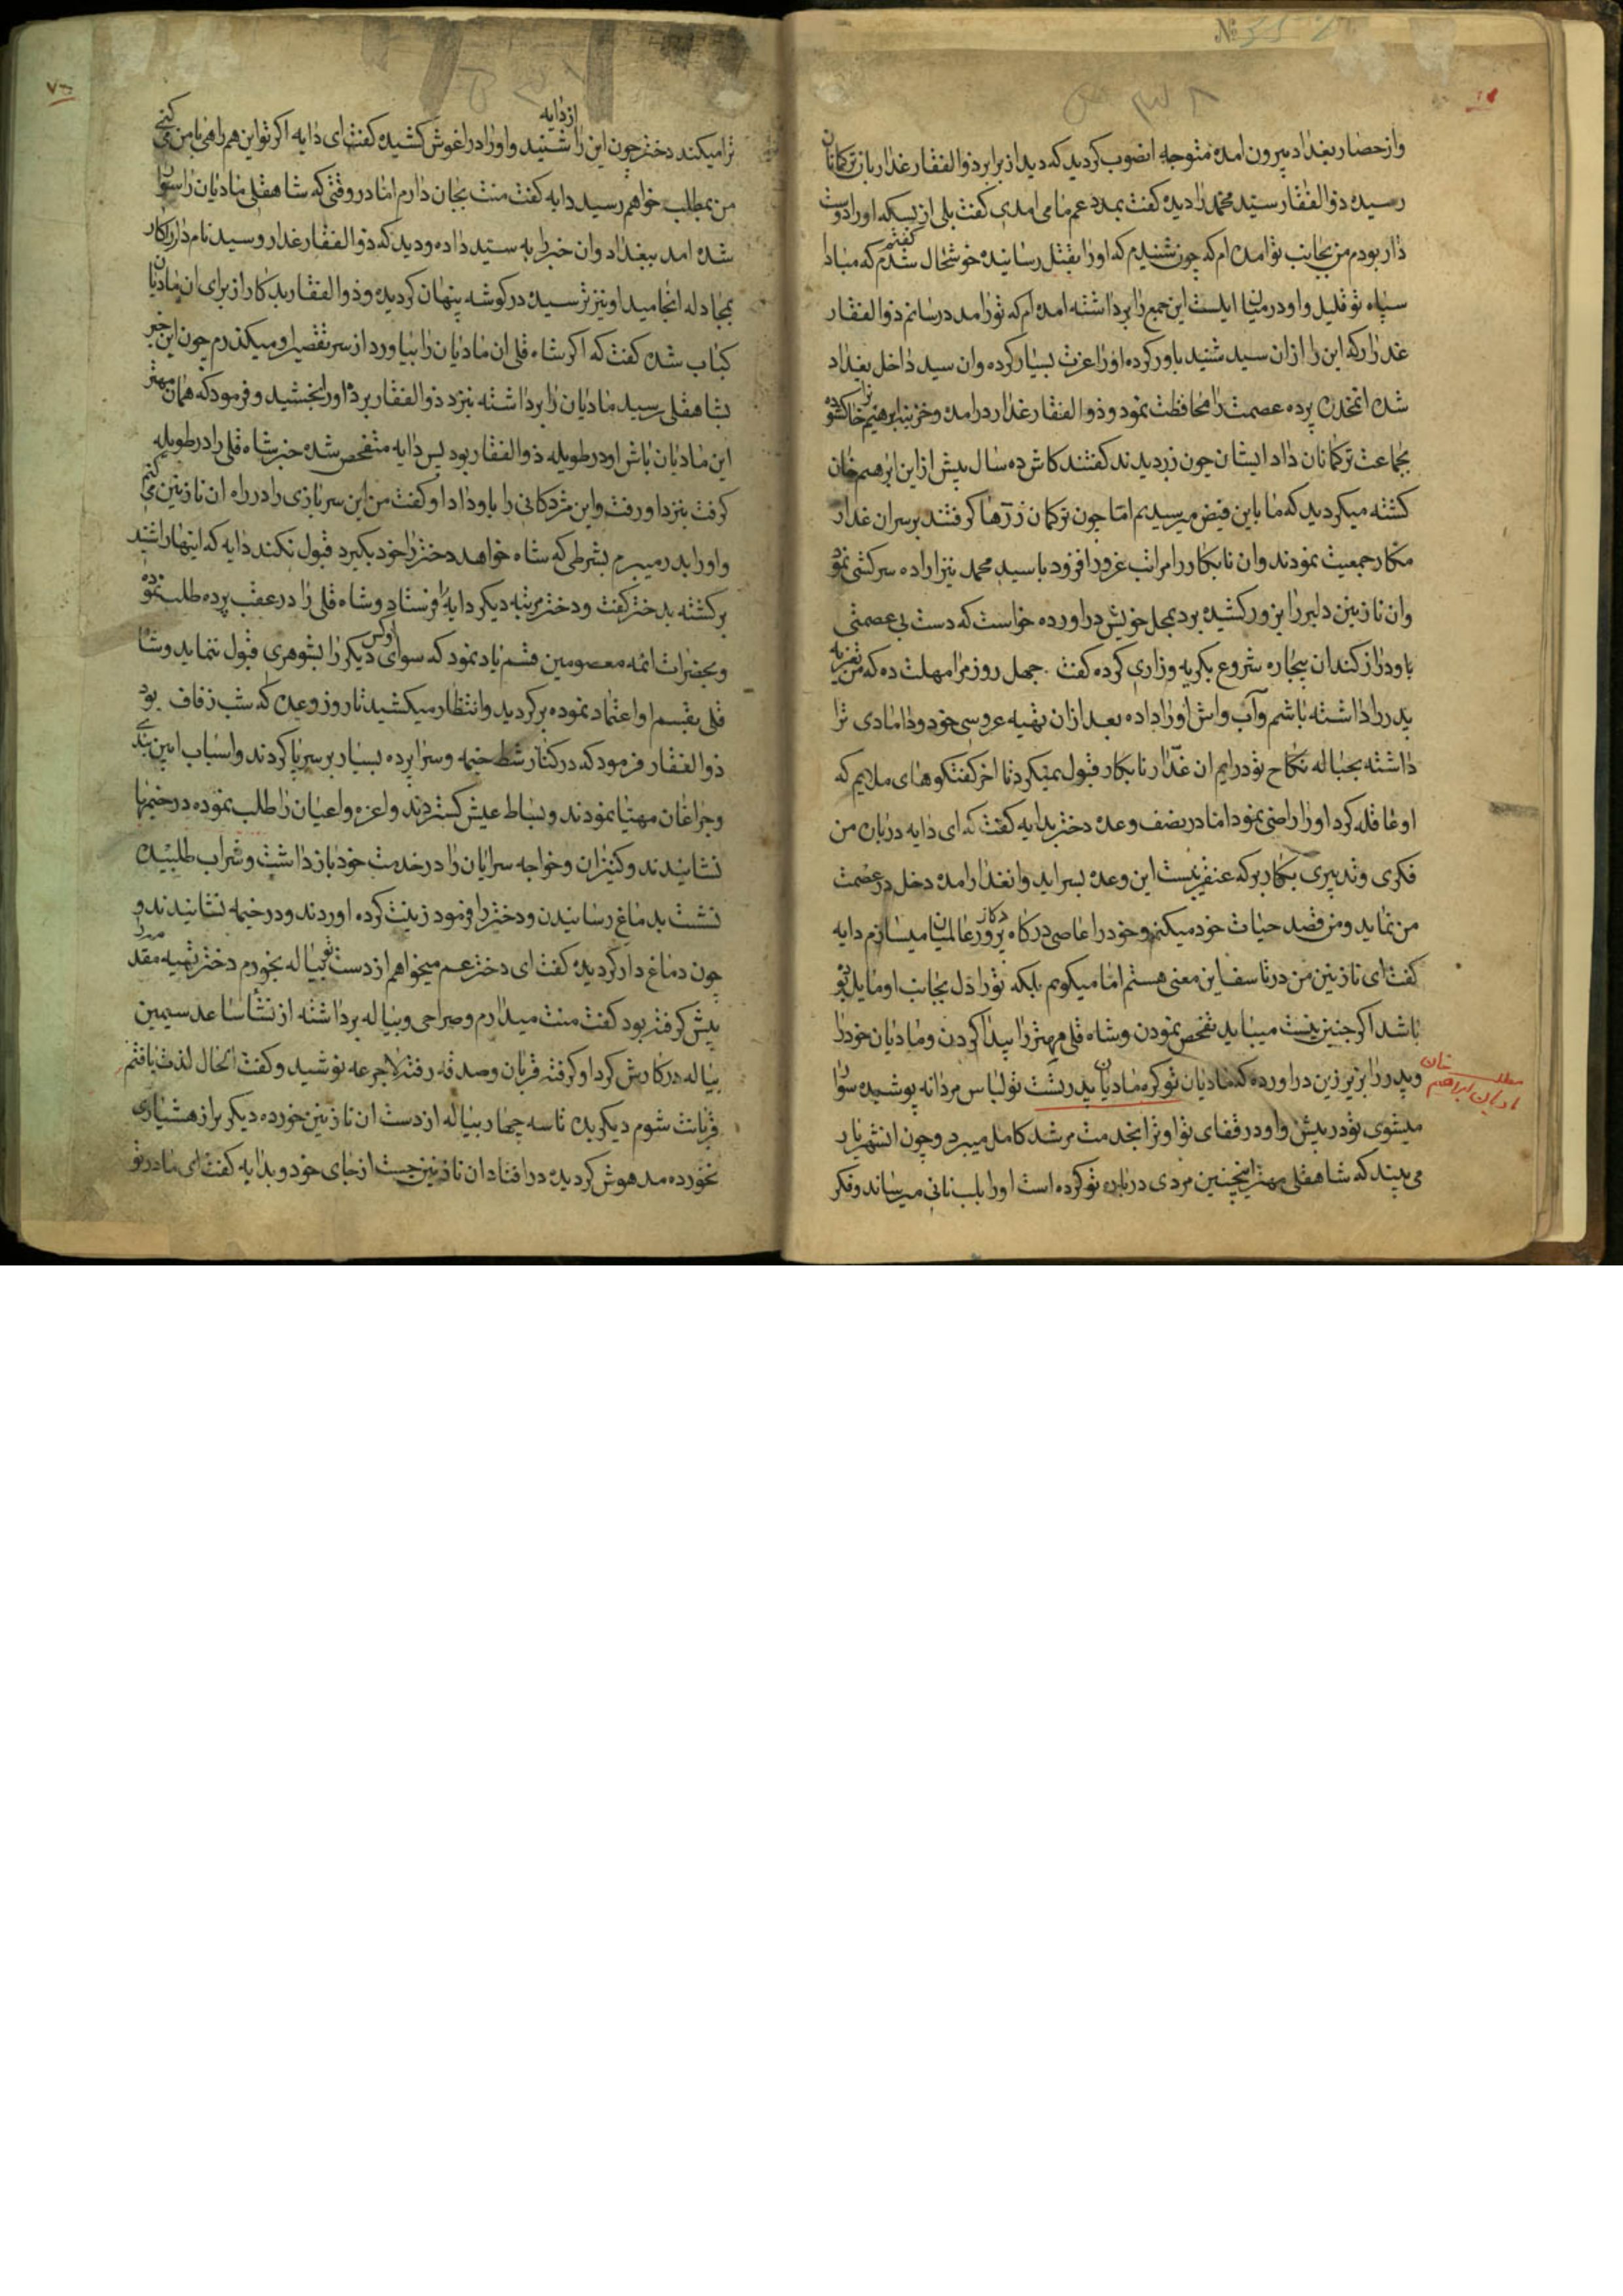 وازحصار بغداد بیرون امده متوجه انصوب کردید که دید از برابر ذوالفقار غدار بان ترکمانان
رسیده ذوالفقار سید محمد را دیده کفت بمدد عم ما می امدی کفت بلی از بسکه اورا دوست
دار بودم من بجانب تو امده ام که چون شنیدم که اورا بقتل رسانیده خوشحال شدم کفتم که مبادا
سپاه تو قلیل و او در میان ایلست این جمع را برداشته امده ام که تورا مدد رسانم ذوالفقار
غدار که این را از ان سید شنید باور کرده اورا عزت بسیار کرده وان سید داخل بغداد
شده انمخدره پرده عصمت را محافظت نمود و ذوالفقار غدار درامده و خزینه ابرهیم خانرا کشوده
بجماعت ترکمانان داد ایشان چون زر دیدند کفتند کاش ده سال پیش از این ابرهیم خان
کشته میکردید که ما باین فیض میرسیدیم اما چون ترکمان زرها کرفتند برسر ان غدار
مکار جمعیت نمودند وان نابکار را مراتب غرور افزود با سید محمد نیز اراده سرکشی نمود
وان نازنین دلبر را بزور کشیده برد بمحل خویش دراورده خواست که دست بی عصمتی
باو دراز کند ان بیچاره شروع بکریه وزاری کرده کفت چهل روز مرا مهلت ده که من تعزیه
پدر را داشته باشم وآب واش اورا داده بعد از ان تهیه عروسی خود و دامادی ترا
داشته بحباله نکاح تو درایم ان غدار نابکار قبول نمیکرد تا اخر کفتکوهای ملایم که
اوعاقله کرد اورا راضی نمود اما در نصف وعده دختر بدایه کفت که ای دایه در باره من
فکری وتدبیری بکار بر که عنقریبست این وعده بسر اید وانغدار امده دخل در عصمت
من نماید ومن قصد حیات خود میکنم وخود را عاصی درکاه پروردکار عالمیان میسازم دایه
کفت ای نازنین من در تاسف این معنی هستم اما میکویم بلکه تورا دل بجانب او مایل تو
باشد اکر چنین نیست میباید تفحص نمودن وشاه قلی مهتر را پیدا کردن ومادیان خود را
وپدر را بزیر زین دراورده که مادیان تو کره مادیان پدرتست تو لباس مردانه پوشیده سوار
میشوی تو در پیش واو در قفای تو او ترا بخدمت مرشد کامل میبرد وچون انشهریار
می بیند که شاهقلی مهتر اینچنین مردی در باره تو کرده است اورا بلب نانی میرساند وفکر
مطلب خان
مادیان ابراهیم
ترا میکند دختر چون این را از دایه شنید واورا در اغوش کشیده کفت ای دایه اکر تو این همراهی با من می کنی
من بمطلب خواهم رسید دایه کفت منت بجان دارم اما در وقتی که شاهقلی مادیان را سوار
شده امد ببغداد وان خبر را به سید داده ودید که ذوالفقار غدار وسید نامدار را کار
بمجادله انجامید او نیز ترسیده در کوشه پنهان کردیده وذوالفقار بدکار از برای ان مادیان
کباب شده کفت که اکر شاه قلی ان مادیان را بیاورد از سر تقصیر او میکذرم چون این خبر
بشاهقلی رسید مادیان را برداشته بنزد ذوالفقار برد اورا بخشید وفرمود که همان مهتر
این مادیان باش او در طویله ذوالفقار بود پس دایه متفحص شده خبر شاه قلی را در طویله
کرفت بنزد او رفت واین مژدکانی را باو داد او کفت من این سربازی را در راه ان نازنین می کنم
واورا بدر میبرم بشرطی که شاه خواهد دختر را خود بکیرد قبول نکند دایه که اینها را شنید
برکشته بدختر کفت ودختر مرتبه دیکر دایه را فرستاد وشاه قلی را در عقب پرده طلب نموده
وبحضرات ائمه معصومین قسم یاد نمود که سوای او کس دیکر را بشوهری قبول ننماید وشاه
قلی بقسم او اعتماد نموده برکردید وانتظار میکشید تا روز وعده که شب زفاف بود
ذوالفقار فرمود که در کنار شط خیمه وسراپرده بسیار برسرپا کردند واسباب ایین بندی
وچراغان مهیا نمودند وبساط عیش کستردند واعزه واعیان را طلب نموده در خیمها
نشانیدند وکنیزان وخواجه سرایان را در خدمت خود بازداشت وشراب طلبیده
نشست بدماغ رسانیدن ودختر را فرمود زینت کرده اوردند ودر خیمه نشانیدند و
چون دماغ دار کردیده کفت ای دختر عم میخواهم از دست تو پیاله بخورم دختر تهیه مقدمه را
پیش کرفته بود کفت منت میدارم وصراحی وپیاله برداشته از نشأ ساعد سیمین
پیاله در کارش کرد او کرفته قربان وصدقه رفته لاجرعه نوشید وکفت الحال لذت یافتم
قربانت شوم دیکر بده تا سه چهار پیاله از دست ان نازنین خورده دیکر براز هشیاری
نخورده مدهوش کردیده در افتاد ان نازنین جست از جای خود وبدایه کفت ای مادر تو